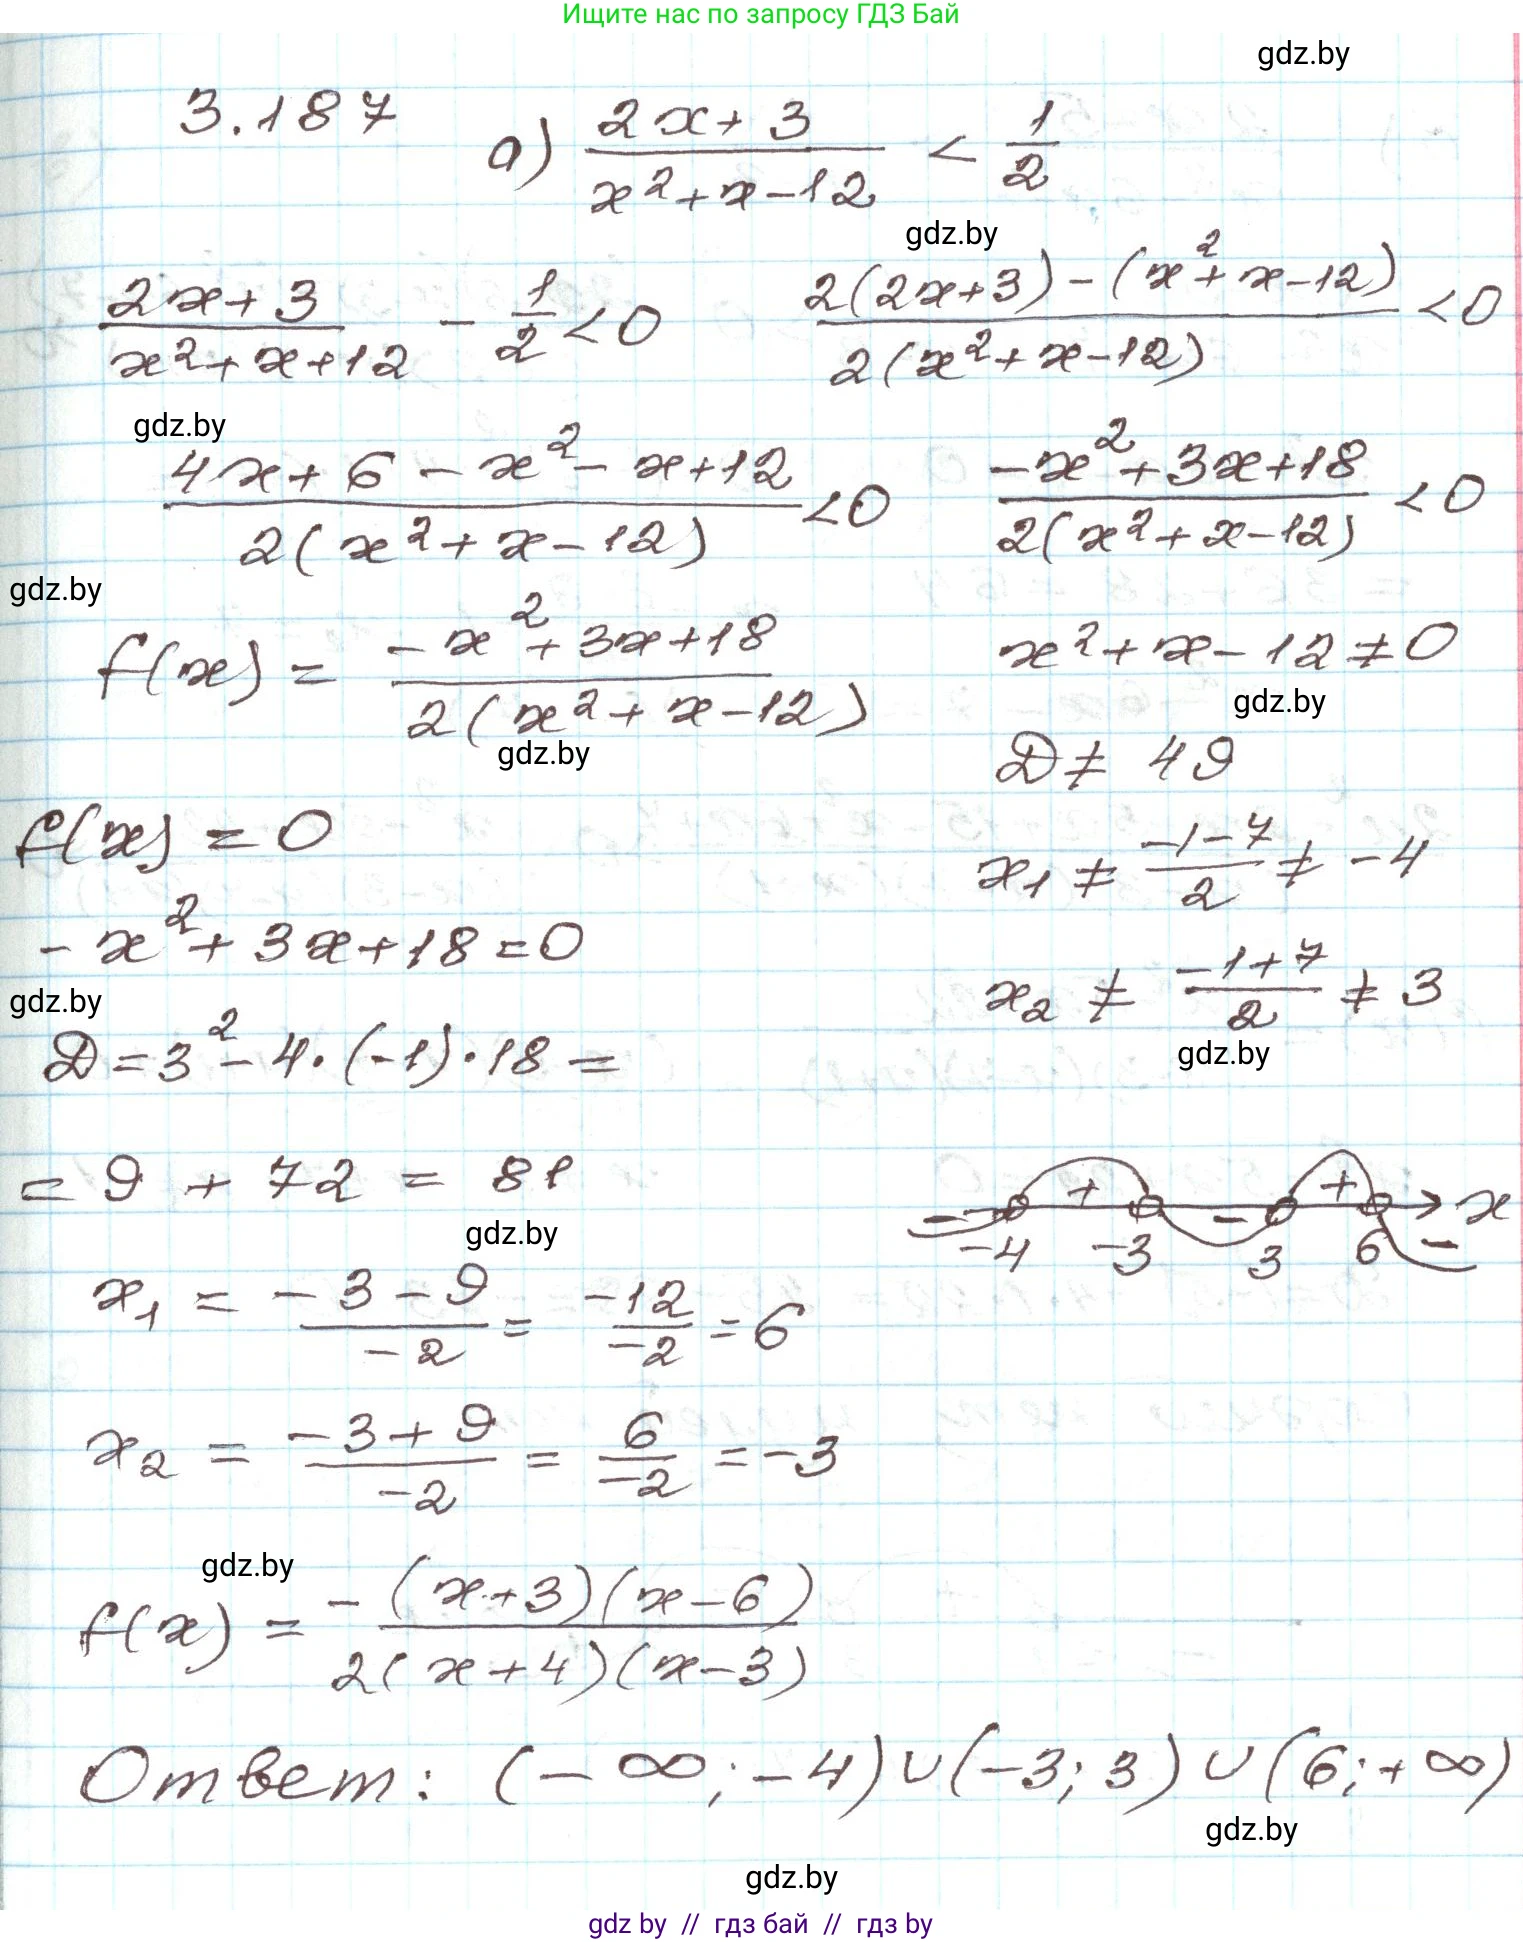 Ищите нас по запросу ГДЗ Бай
gdz.by
3.187 а) (2x+3)/(x²+x-12) < 1/2
gdz.by
(2x+3)/(x²+x+12) - 1/2 < 0 (2(2x+3)-(x²+x-12))/(2(x²+x-12)) < 0
gdz.by
(4x+6-x²-x+12)/(2(x²+x-12)) < 0 (-x²+3x+18)/(2(x²+x-12)) < 0
gdz.by
f(x) = (-x²+3x+18)/(2(x²+x-12)) x²+x-12≠0
gdz.by
gdz.by
D≠ 49
f(x) = 0
x₁ ≠ (-1-7)/2 ≠ -4
-x²+3x+18=0
gdz.by
x₂ ≠ (-1+7)/2 ≠ 3
D=3²-4·(-1)·18=
gdz.by
=9+72=81
gdz.by
- + - + - x
-4 -3 3 6
x₁ = (-3-9)/-2 = -12/-2 = 6
x₂ = (-3+9)/-2 = 6/-2 = -3
gdz.by
f(x) = -(x+3)(x-6)/(2(x+4)(x-3))
Ответ: (-∞;-4)∪(-3;3)∪(6;+∞)
gdz.by
gdz.by
gdz by // гдз бай // гдз by